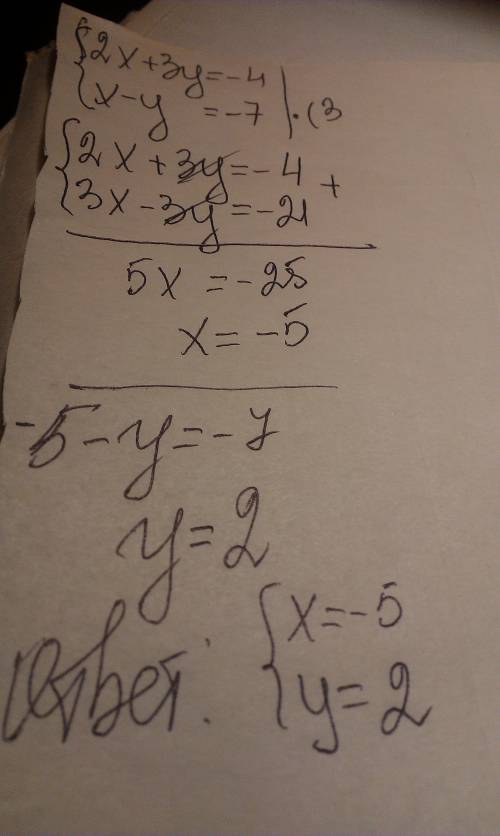 {2x+3y=-4
{x-y =-7 |·(3
{2x+3y=-4 +
{3x-3y=-21
5x =-25
x=-5
-5-y=-7
y=2
Ответ: {x=-5
{y=2